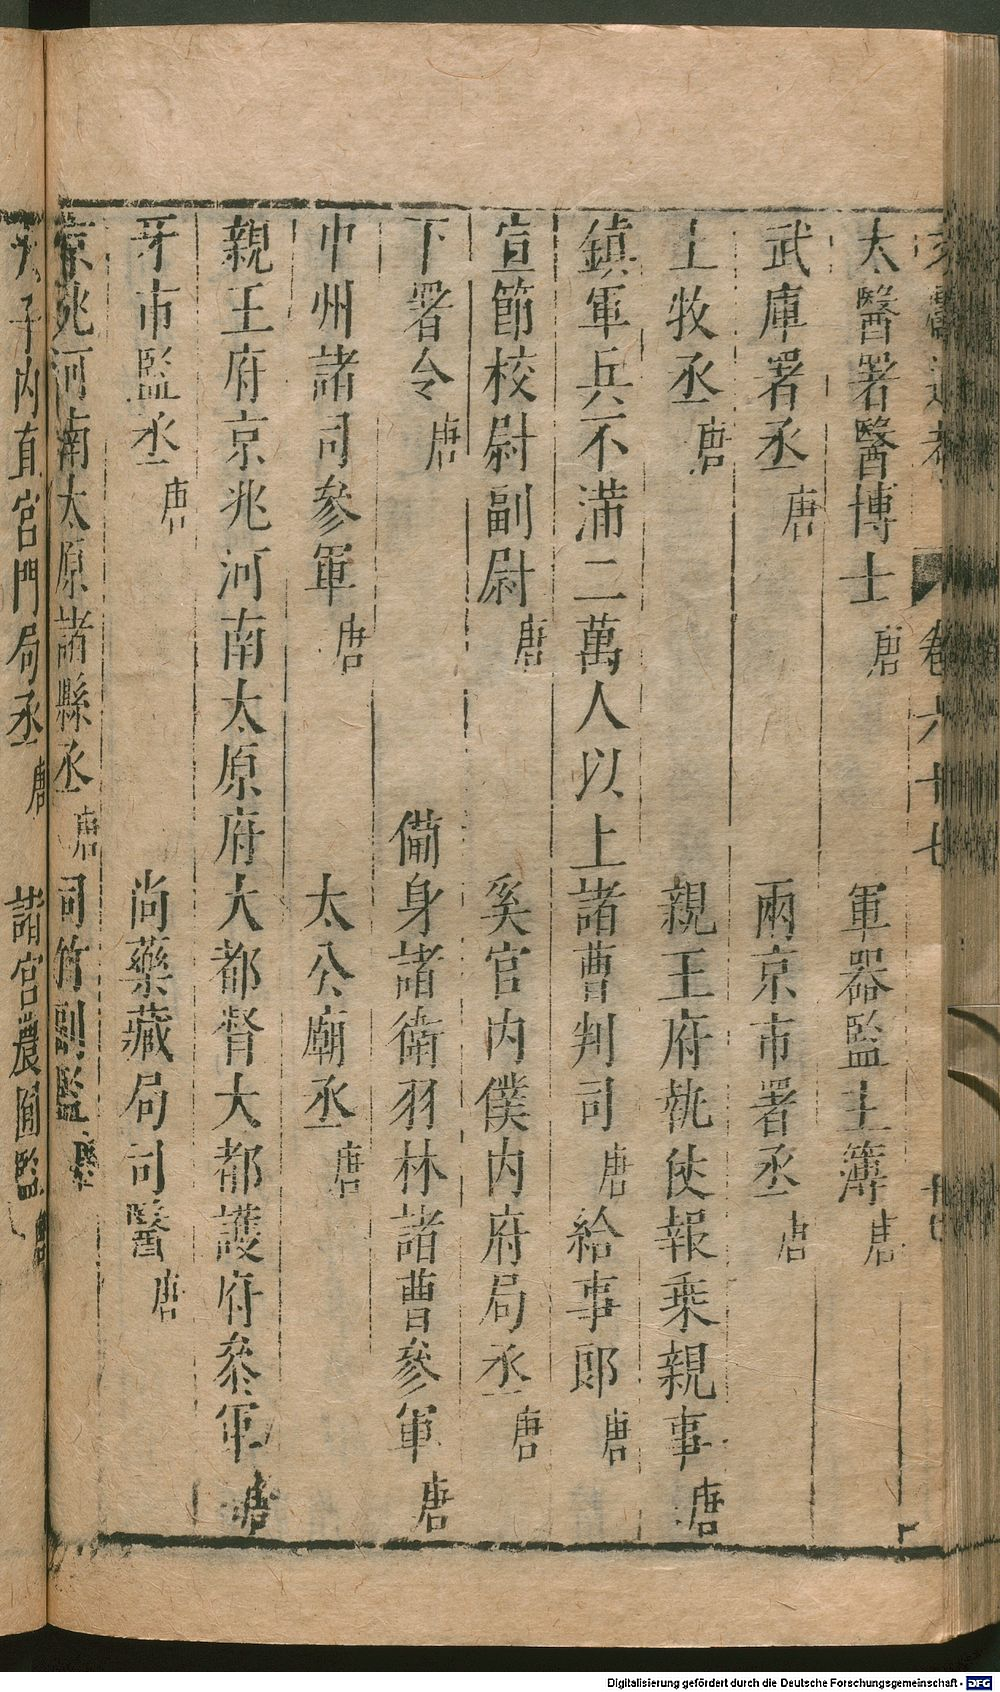 文獻通考 卷六十七
太醫署醫博士唐 軍器監主簿唐
武庫署丞唐 兩京市署丞唐
上牧丞唐 親王府執仗報乘親事唐
鎮軍兵不滿二萬人以上諸曹判司唐 給事郎唐
宣節校尉副尉唐 奚官內僕內府局丞唐
下署令唐 備身諸衛羽林諸曹參軍唐
中州諸司參軍唐 太公廟丞唐
親王府京兆河南太原府大都督大都護府參軍唐
牙市監丞唐 尚藥藏局司醫唐
京兆河南太原諸縣丞唐 司竹副監
太子內直宮門局丞唐 諸宮農圃監
Digitalisierung gefördert durch die Deutsche Forschungsgemeinschaft - DFG